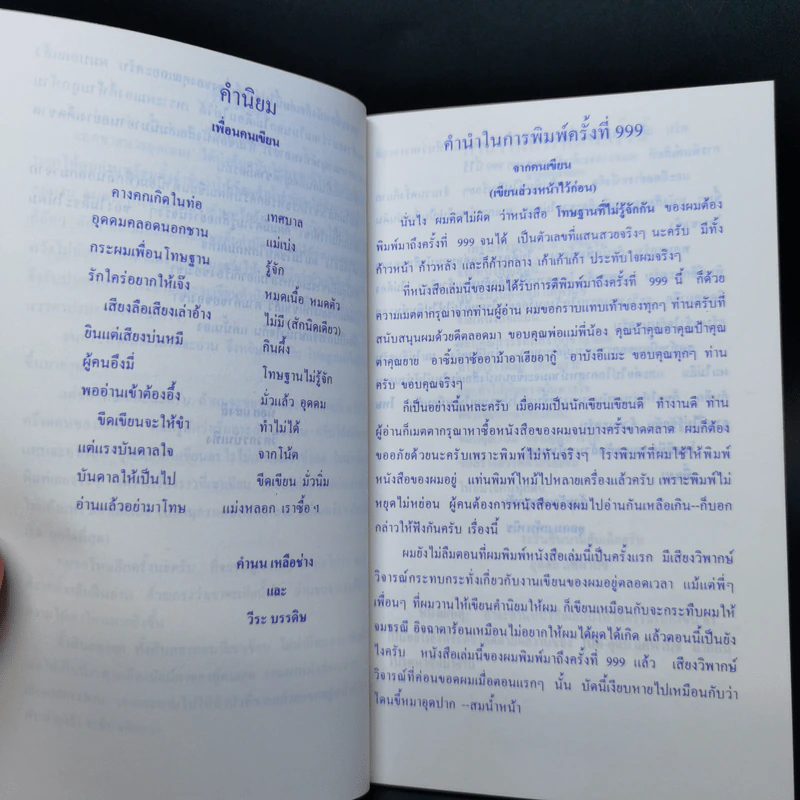 คำนิยม
เพื่อนคนเขียน
คางคกเกิดในท่อ เทศบาล
อุดดมคลอดนอกชาน แม่เบ่ง
กระผมเพื่อนโทษฐาน รู้จัก
รักใคร่อยากให้เจ๊ง หมดเนื้อ หมดตัว
เสียงลือเสียงเล่าอ้าง ไม่มี (สักนิดเดียว)
ยินแต่เสียงบ่นหมี กินผึ้ง
ผู้คนอึงมี่ โทษฐานไม่รู้จัก
พออ่านเข้าต้องอึ้ง มั่วแล้ว อุดดม
ขีดเขียนจะให้ขำ ทำไม่ได้
แต่แรงบันดาลใจ จากโน้ต
บันดาลให้เป็นไป ขีดเขียน มั่วนิ่ม
อ่านแล้วอย่ามาโทษ แม่งหลอก เราซื้อ ฯ
คำนน เหลือช่าง
และ
วีระ บรรดิษ
คำนำในการพิมพ์ครั้งที่ 999
จากคนเขียน
(เขียนล่วงหน้าไว้ก่อน)
นั่นไง ผมคิดไม่ผิด ว่าหนังสือ โทษฐานที่ไม่รู้จักกัน ของผมต้อง
พิมพ์มาถึงครั้งที่ 999 จนได้ เป็นตัวเลขที่แสนสวยจริงๆ นะครับ มีทั้ง
ก้าวหน้า ก้าวหลัง และก็ก้าวกลาง เก้าเก้าเก้า ประทับใจผมจริงๆ
ที่หนังสือเล่มนี้ของผมได้รับการตีพิมพ์มาถึงครั้งที่ 999 นี้ ก็ด้วย
ความเมตตากรุณาจากท่านผู้อ่าน ผมขอกราบแทบเท้าของทุกๆ ท่านครับที่
สนับสนุนผมด้วยดีตลอดมา ขอบคุณพ่อแม่พี่น้อง คุณน้าคุณอาคุณป้าคุณ
ตาคุณยาย อาซิ้มอาซ้ออาม้าอาเฮียอากู๋ อาบังอีแมะ ขอบคุณทุกๆ ท่าน
ครับ ขอบคุณจริงๆ
ก็เป็นอย่างนี้แหละครับ เมื่อผมเป็นนักเขียนเขียนดี ทำงานดี ท่าน
ผู้อ่านก็เมตตากรุณาหาซื้อหนังสือของผมจนบางครั้งขาดตลาด ผมก็ต้อง
ขออภัยด้วยนะครับเพราะพิมพ์ไม่ทันจริงๆ โรงพิมพ์ที่ผมใช้ให้พิมพ์
หนังสือของผมอยู่ แท่นพิมพ์ไหม้ไปหลายเครื่องแล้วครับ เพราะพิมพ์ไม่
หยุดไม่หย่อน ผู้คนต้องการหนังสือของผมไปอ่านกันเหลือเกิน--ก็บอก
กล่าวให้ฟังกันครับ เรื่องนี้
ผมยังไม่ลืมตอนที่ผมพิมพ์หนังสือเล่มนี้เป็นครั้งแรก มีเสียงวิพากษ์
วิจารณ์กระทบกระทั่งเกี่ยวกับงานเขียนของผมอยู่ตลอดเวลา แม้แต่พี่ๆ
เพื่อนๆ ที่ผมวานให้เขียนคำนิยมให้ผม ก็เขียนเหมือนกับจะกระทืบผมให้
จมธรณี อิจฉาตาร้อนเหมือนไม่อยากให้ผมได้ผุดได้เกิด แล้วตอนนี้เป็นยัง
ไงครับ หนังสือเล่มนี้ของผมพิมพ์มาถึงครั้งที่ 999 แล้ว เสียงวิพากษ์
วิจารณ์ที่ค่อนขอดผมเมื่อตอนแรกๆ นั้น บัดนี้เงียบหายไปเหมือนกับว่า
โดนขี้หมาอุดปาก --สมน้ำหน้า